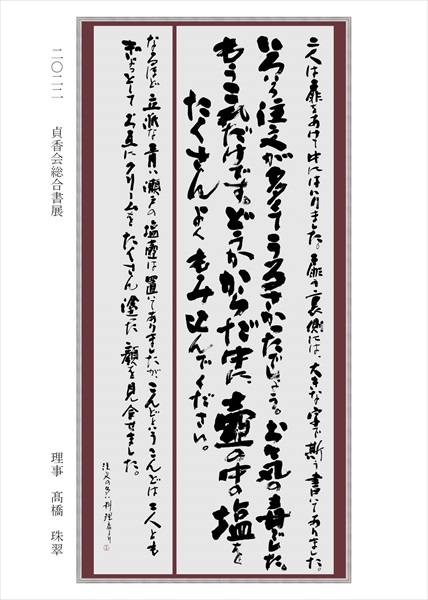 二人は扉をあけて中にはいりました。扉の裏側には、大きな字で斯う書いてありました。
いろいろ注文が多くてうるさかったでしょう。お気の毒でした。
もうこれだけです。どうかからだ中に、壷の中の塩を
たくさんよくもみ込んでください。
なるほど立派な青い瀬戸の塩壷は置いてありましたが、こんどというこんどは二人とも
ぎょっとしてお互にクリームをたくさん塗った顔を見合せました。
注文の多い料理店より
二〇二二 貞香会総合書展
理事 髙橋 珠翠